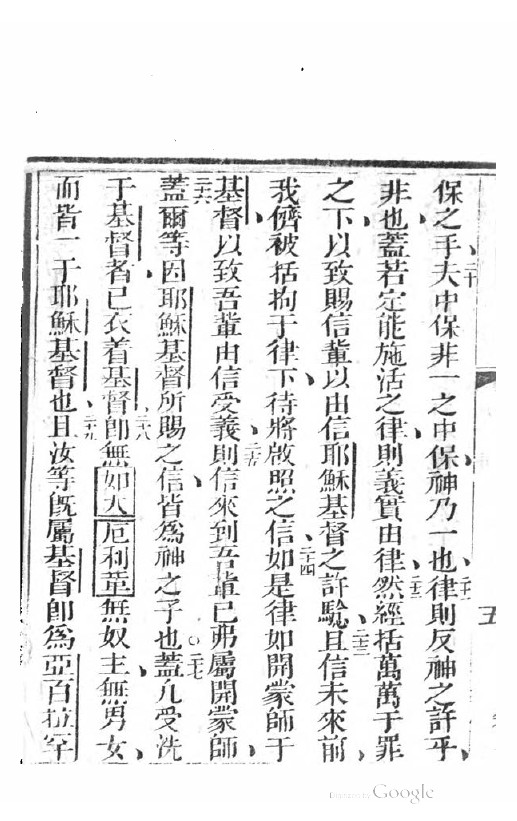 保之手夫中保非一之中保神乃一也律則反神之許乎
二十
二十一
非也蓋若定能施活之律則義實由律然經括萬萬于罪
二十二
之下以致賜信輩以由信耶穌基督之許騐且信未來前
二十三
我儕被括拘于律下待將啟照之信如是律如開蒙師于
二十四
基督以致吾輩由信受義則信來到吾輩已弗屬開蒙師
二十五
蓋爾等因耶穌基督所賜之信皆為神之子也蓋凡受洗
二十六
二十七
于基督者已衣着基督卽無如大厄利童無奴主無男女
二十八
而皆一于耶穌基督也且汝等旣屬基督卽為亞百拉罕
二十九
五
Google